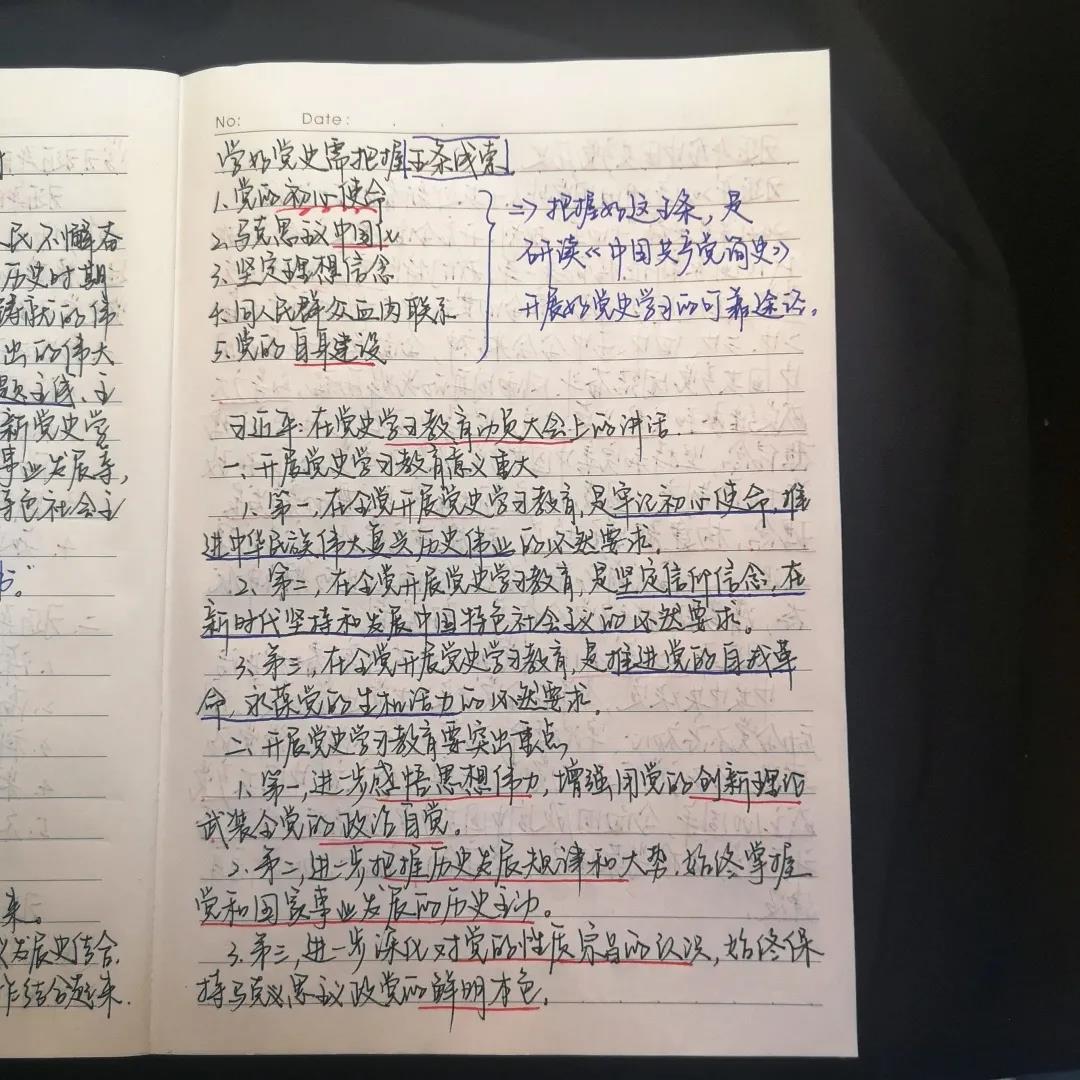 民不懈奋
历史时期
铸就的伟
出的伟大
题主线、主
新党史学
事业发展等,
特色社会主
书。"
来。
发展史结合,
作结合起来.
No: Date: . .
学好党史需把握五条线索
1.党的初心使命
2.马克思主义中国化
3.坚定理想信念
4.同人民群众血肉联系
5.党的自身建设
⇒把握好这五条,是
研读《中国共产党简史》
开展好党史学习的可靠途径。
习近平:在党史学习教育动员大会上的讲话.
一、开展党史学习教育意义重大
1.第一,在全党开展党史学习教育,是牢记初心使命,推
进中华民族伟大复兴历史伟业的必然要求.
2.第二,在全党开展党史学习教育,是坚定信仰信念,在
新时代坚持和发展中国特色社会主义的必然要求。
3.第三,在全党开展党史学习教育,是推进党的自我革
命,永葆党的生机活力的必然要求.
二、开展党史学习教育要突出重点
1.第一,进一步感悟思想伟力,增强用党的创新理论
武装全党的政治自觉。
2.第二,进一步把握历史发展规律和大势,始终掌握
党和国家事业发展的历史主动。
3.第三,进一步深化对党的性质宗旨的认识,始终保
持马克思主义政党的鲜明本色.